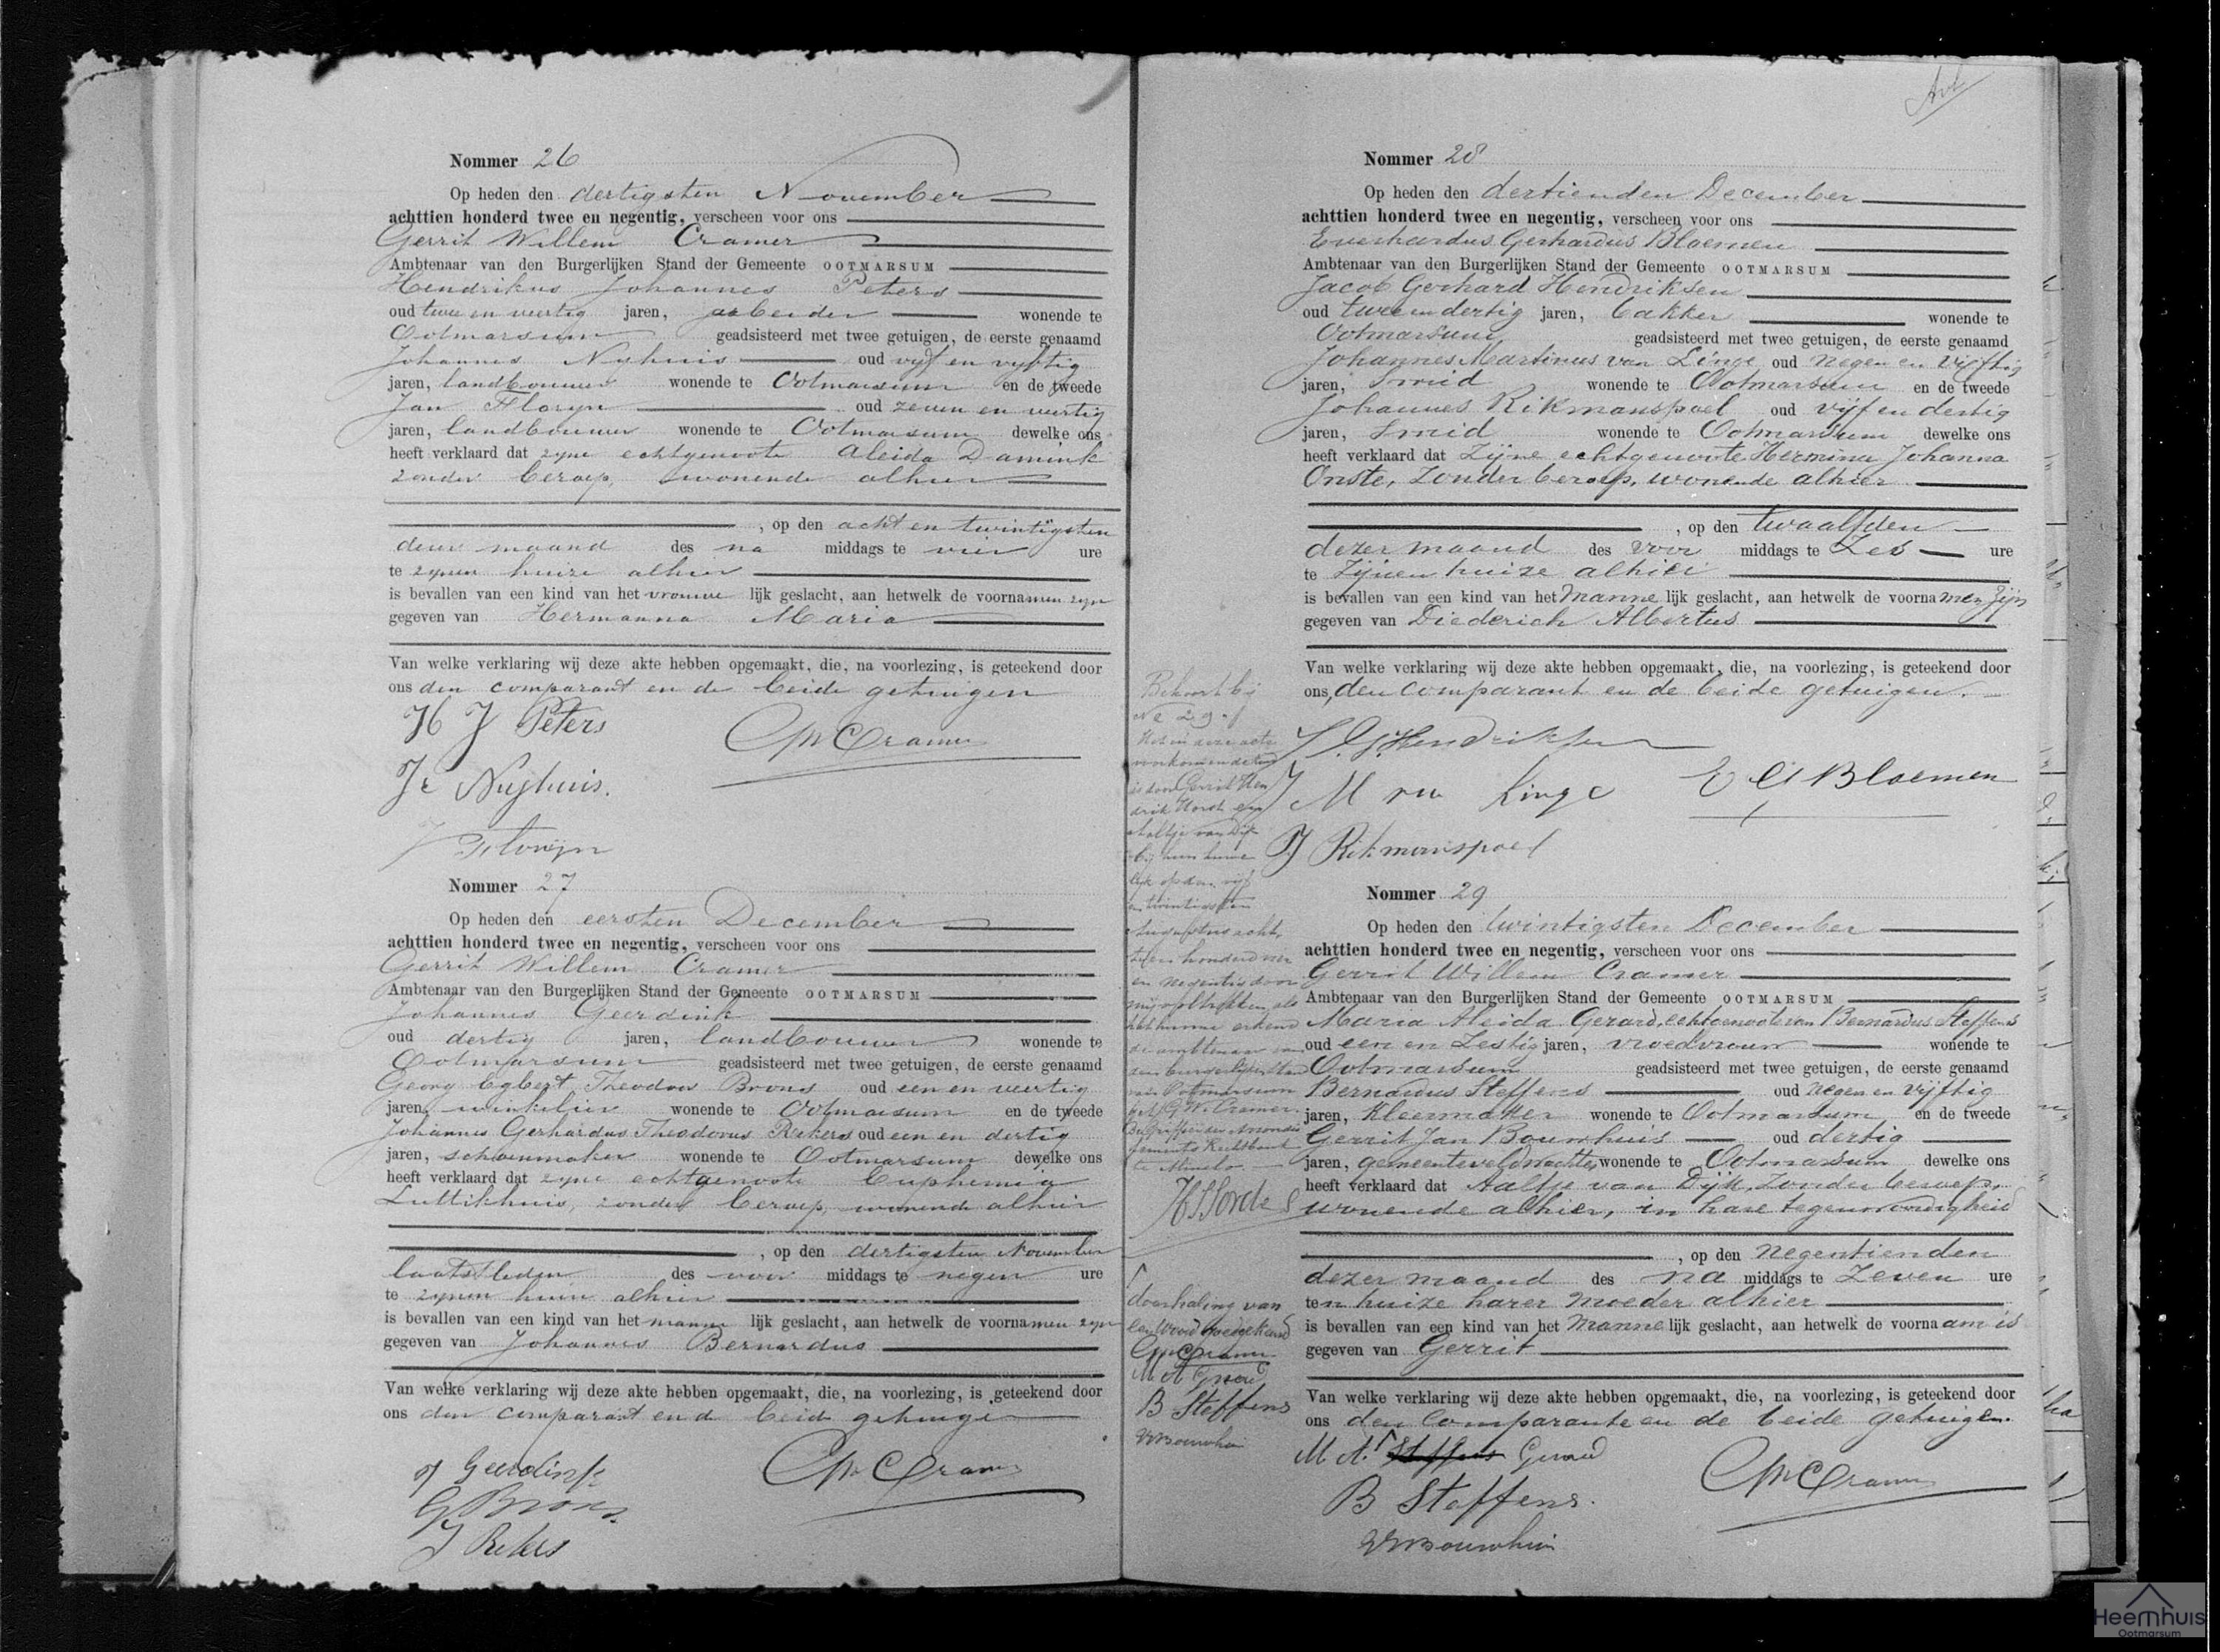 Nommer 26
Op heden den dertigsten November
achttien honderd twee en negentig, verscheen voor ons
Gerrit Willem Cramer
Ambtenaar van den Burgerlijken Stand der Gemeente OOTMARSUM
Hendrikus Johannes Peters
oud twee en veertig jaren, arbeider wonende te
Ootmarsum geadsisteerd met twee getuigen, de eerste genaamd
Johannes Nyhuis oud vyf en vyftig
jaren, landbouwer wonende te Ootmarsum en de tweede
Jan Floryn oud zeven en veertig
jaren, landbouwer wonende te Ootmarsum dewelke ons
heeft verklaard dat zyne echtgenoote Aleida Damink
zonder beroep, wonende alhier
, op den acht en twintigsten
dezer maand des na middags te vier ure
te zynen huize alhier
is bevallen van een kind van het vrouwe lijk geslacht, aan hetwelk de voornamen zyn
gegeven van Hermanna Maria
Van welke verklaring wij deze akte hebben opgemaakt, die, na voorlezing, is geteekend door
ons den comparant en de beide getuigen
H J Peters
GW Cramer
Js Nyhuis.
J Floryn
Nommer 27
Op heden den eersten December
achttien honderd twee en negentig, verscheen voor ons
Gerrit Willem Cramer
Ambtenaar van den Burgerlijken Stand der Gemeente OOTMARSUM
Johannes Geerdink
oud dertig jaren, landbouwer wonende te
Ootmarsum geadsisteerd met twee getuigen, de eerste genaamd
Georg Egbert Theodor Brons oud een en veertig
jaren, winkelier wonende te Ootmarsum en de tweede
Johannes Gerhardus Theodorus Rekers oud een en dertig
jaren, schoenmaker wonende te Ootmarsum dewelke ons
heeft verklaard dat zyne echtgenoote Euphemia
Luttikhuis, zonder beroep, wonende alhier
, op den dertigsten November
laatstleden des voor middags te negen ure
te zynen huize alhier
is bevallen van een kind van het manne lijk geslacht, aan hetwelk de voornamen zyn
gegeven van Johannes Bernardus
Van welke verklaring wij deze akte hebben opgemaakt, die, na voorlezing, is geteekend door
ons den comparant en de beide getuigen
J Geerdink
GW Cramer
G Brons
J Rekers
Nommer 28
Op heden den dertienden December
achttien honderd twee en negentig, verscheen voor ons
Everhardus Gerhardus Bloemen
Ambtenaar van den Burgerlijken Stand der Gemeente OOTMARSUM
Jacob Gerhard Hendriksen
oud twee en dertig jaren, bakker wonende te
Ootmarsum geadsisteerd met twee getuigen, de eerste genaamd
Johannes Martinus van Linge oud negen en vijftig
jaren, smid wonende te Ootmarsum en de tweede
Johannes Rikmanspoel oud vijf en dertig
jaren, smid wonende te Ootmarsum dewelke ons
heeft verklaard dat Zijne echtgenoote Hermina Johanna
Onste, zonder beroep, wonende alhier
, op den twaalfden
dezer maand des voor middags te Zes ure
te Zijnen huize alhier
is bevallen van een kind van het Manne lijk geslacht, aan hetwelk de voornamen zijn
gegeven van Diederich Albertus
Van welke verklaring wij deze akte hebben opgemaakt, die, na voorlezing, is geteekend door
ons, den comparant en de beide getuigen.
J.G. Hendriksen
E G Bloemen
J M van Linge
J Rikmanspoel
Behoort bij
No 29.
Het in deze acte
voorkomende kind
is door Gerrit Hen
drik Horst en
Aaltje van Dijk
bij hun huwe
lijk op den vijf
en twintigsten
Augustus acht
tien honderd vier
en negentig door
mij voltrokken als
het hunne erkend
de ambtenaar van
den burgerlijken Stand
van Ootmarsum
get. G W Cramer.
De Griffier der Arrondis
sements Rechtbank
te Almelo
Nommer 29
Op heden den twintigsten December
achttien honderd twee en negentig, verscheen voor ons
Gerrit Willem Cramer
Ambtenaar van den Burgerlijken Stand der Gemeente OOTMARSUM
Maria Aleida Gerard, echtgenoote van Bernardus Steffens
oud een en Zestig jaren, vroedvrouw wonende te
Ootmarsum geadsisteerd met twee getuigen, de eerste genaamd
Bernardus Steffens oud negen en vijftig
jaren, Kleermaker wonende te Ootmarsum en de tweede
Gerrit Jan Bouwhuis oud dertig
jaren, gemeenteveldwachter, wonende te Ootmarsum dewelke ons
heeft verklaard dat Aaltje van Dijk, zonder beroep,
wonende alhier, in hare tegenwoordigheid
, op den negentienden
dezer maand des na middags te Zeven ure
ten huize harer moeder alhier
is bevallen van een kind van het Manne lijk geslacht, aan hetwelk de voornaam is
gegeven van Gerrit
Van welke verklaring wij deze akte hebben opgemaakt, die, na voorlezing, is geteekend door
ons den Comparante en de beide getuigen.
M. A. Steffens Gerard
GW Cramer
B Steffens.
Bouwhuis
doorhaling van
een woord goedgekeurd
GW Cramer
M A Gerard
B Steffens
Bouwhuis
Heemhuis
Ootmarsum